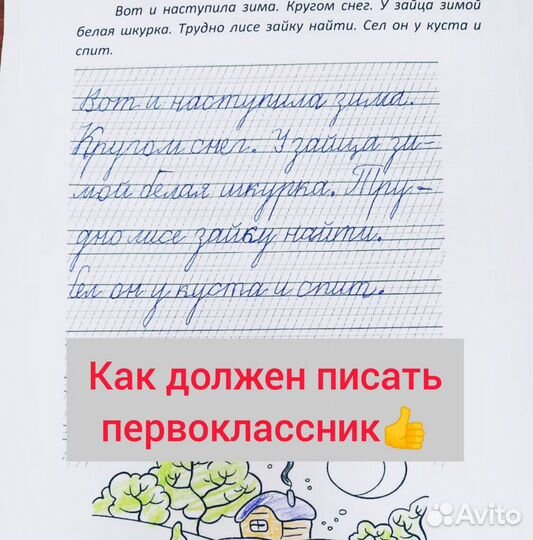 Вот и наступила зима. Кругом снег. У зайца зимой
белая шкурка. Трудно лисе зайку найти. Сел он у куста и
спит.
Вот и наступила зима.
Кругом снег. У зайца зи-
мой белая шкурка. Тру-
дно лисе зайку найти.
Сел он у куста и спит.
Как должен писать
первоклассник👍
Avito